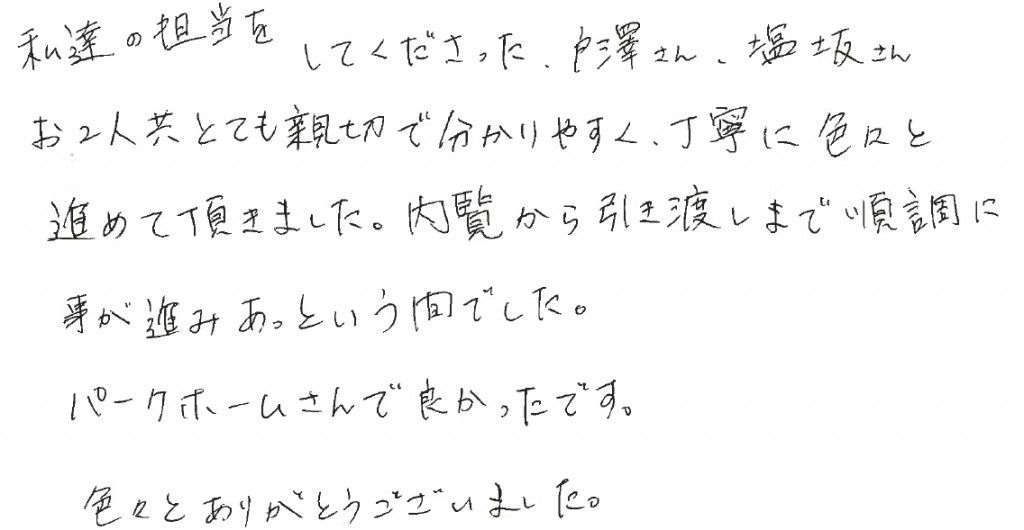 私達の担当をしてくださった、戸澤さん、塩坂さん
お2人共とても親切で分かりやすく、丁寧に色々と
進めて頂きました。内覧から引き渡しまで順調に
事が進みあっという間でした。
パークホームさんで良かったです。
色々とありがとうございました。